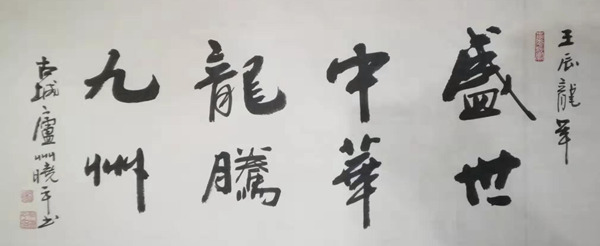 壬辰龍年
盛世
中華
龍騰
九州
古城廬州曉平书